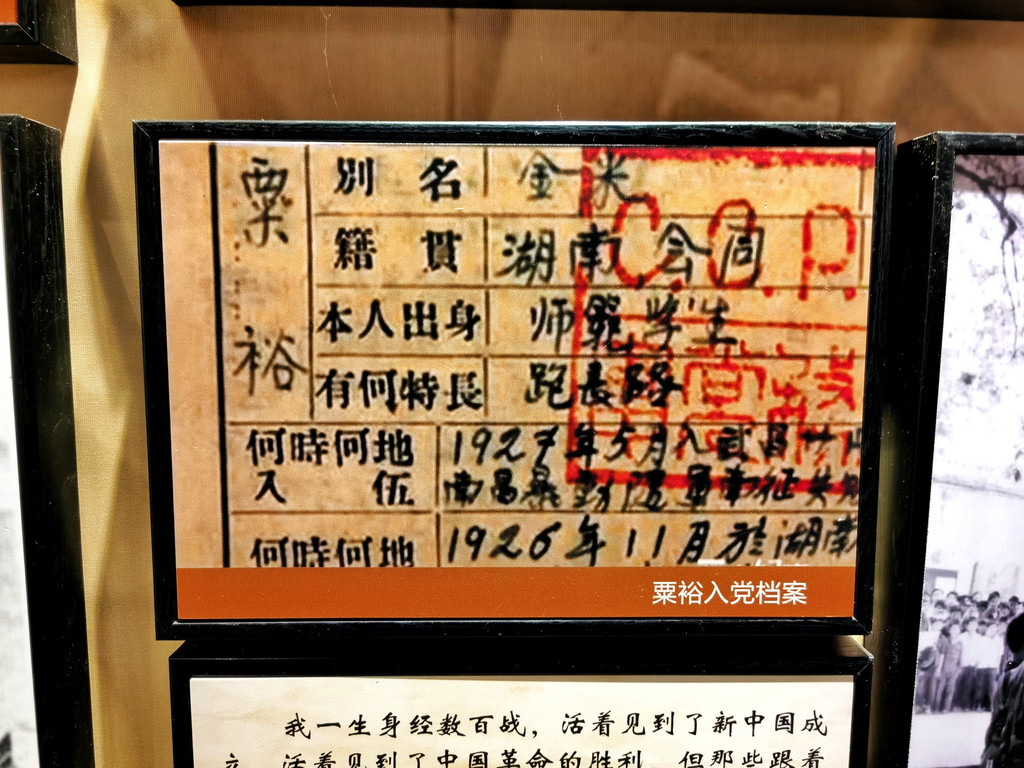 粟裕
別名 金米
籍貫 湖南会同
本人出身 师範学生
有何特長 跑長路
何時何地入伍 1927年5月入武昌廿四
南昌暴動隨軍南征失敗
何時何地 1926年11月於湖南
C.C.P.
粟裕入党档案
我一生身经数百战，活着见到了新中国成
立，活着见到了中国革命的胜利，但那些跟着